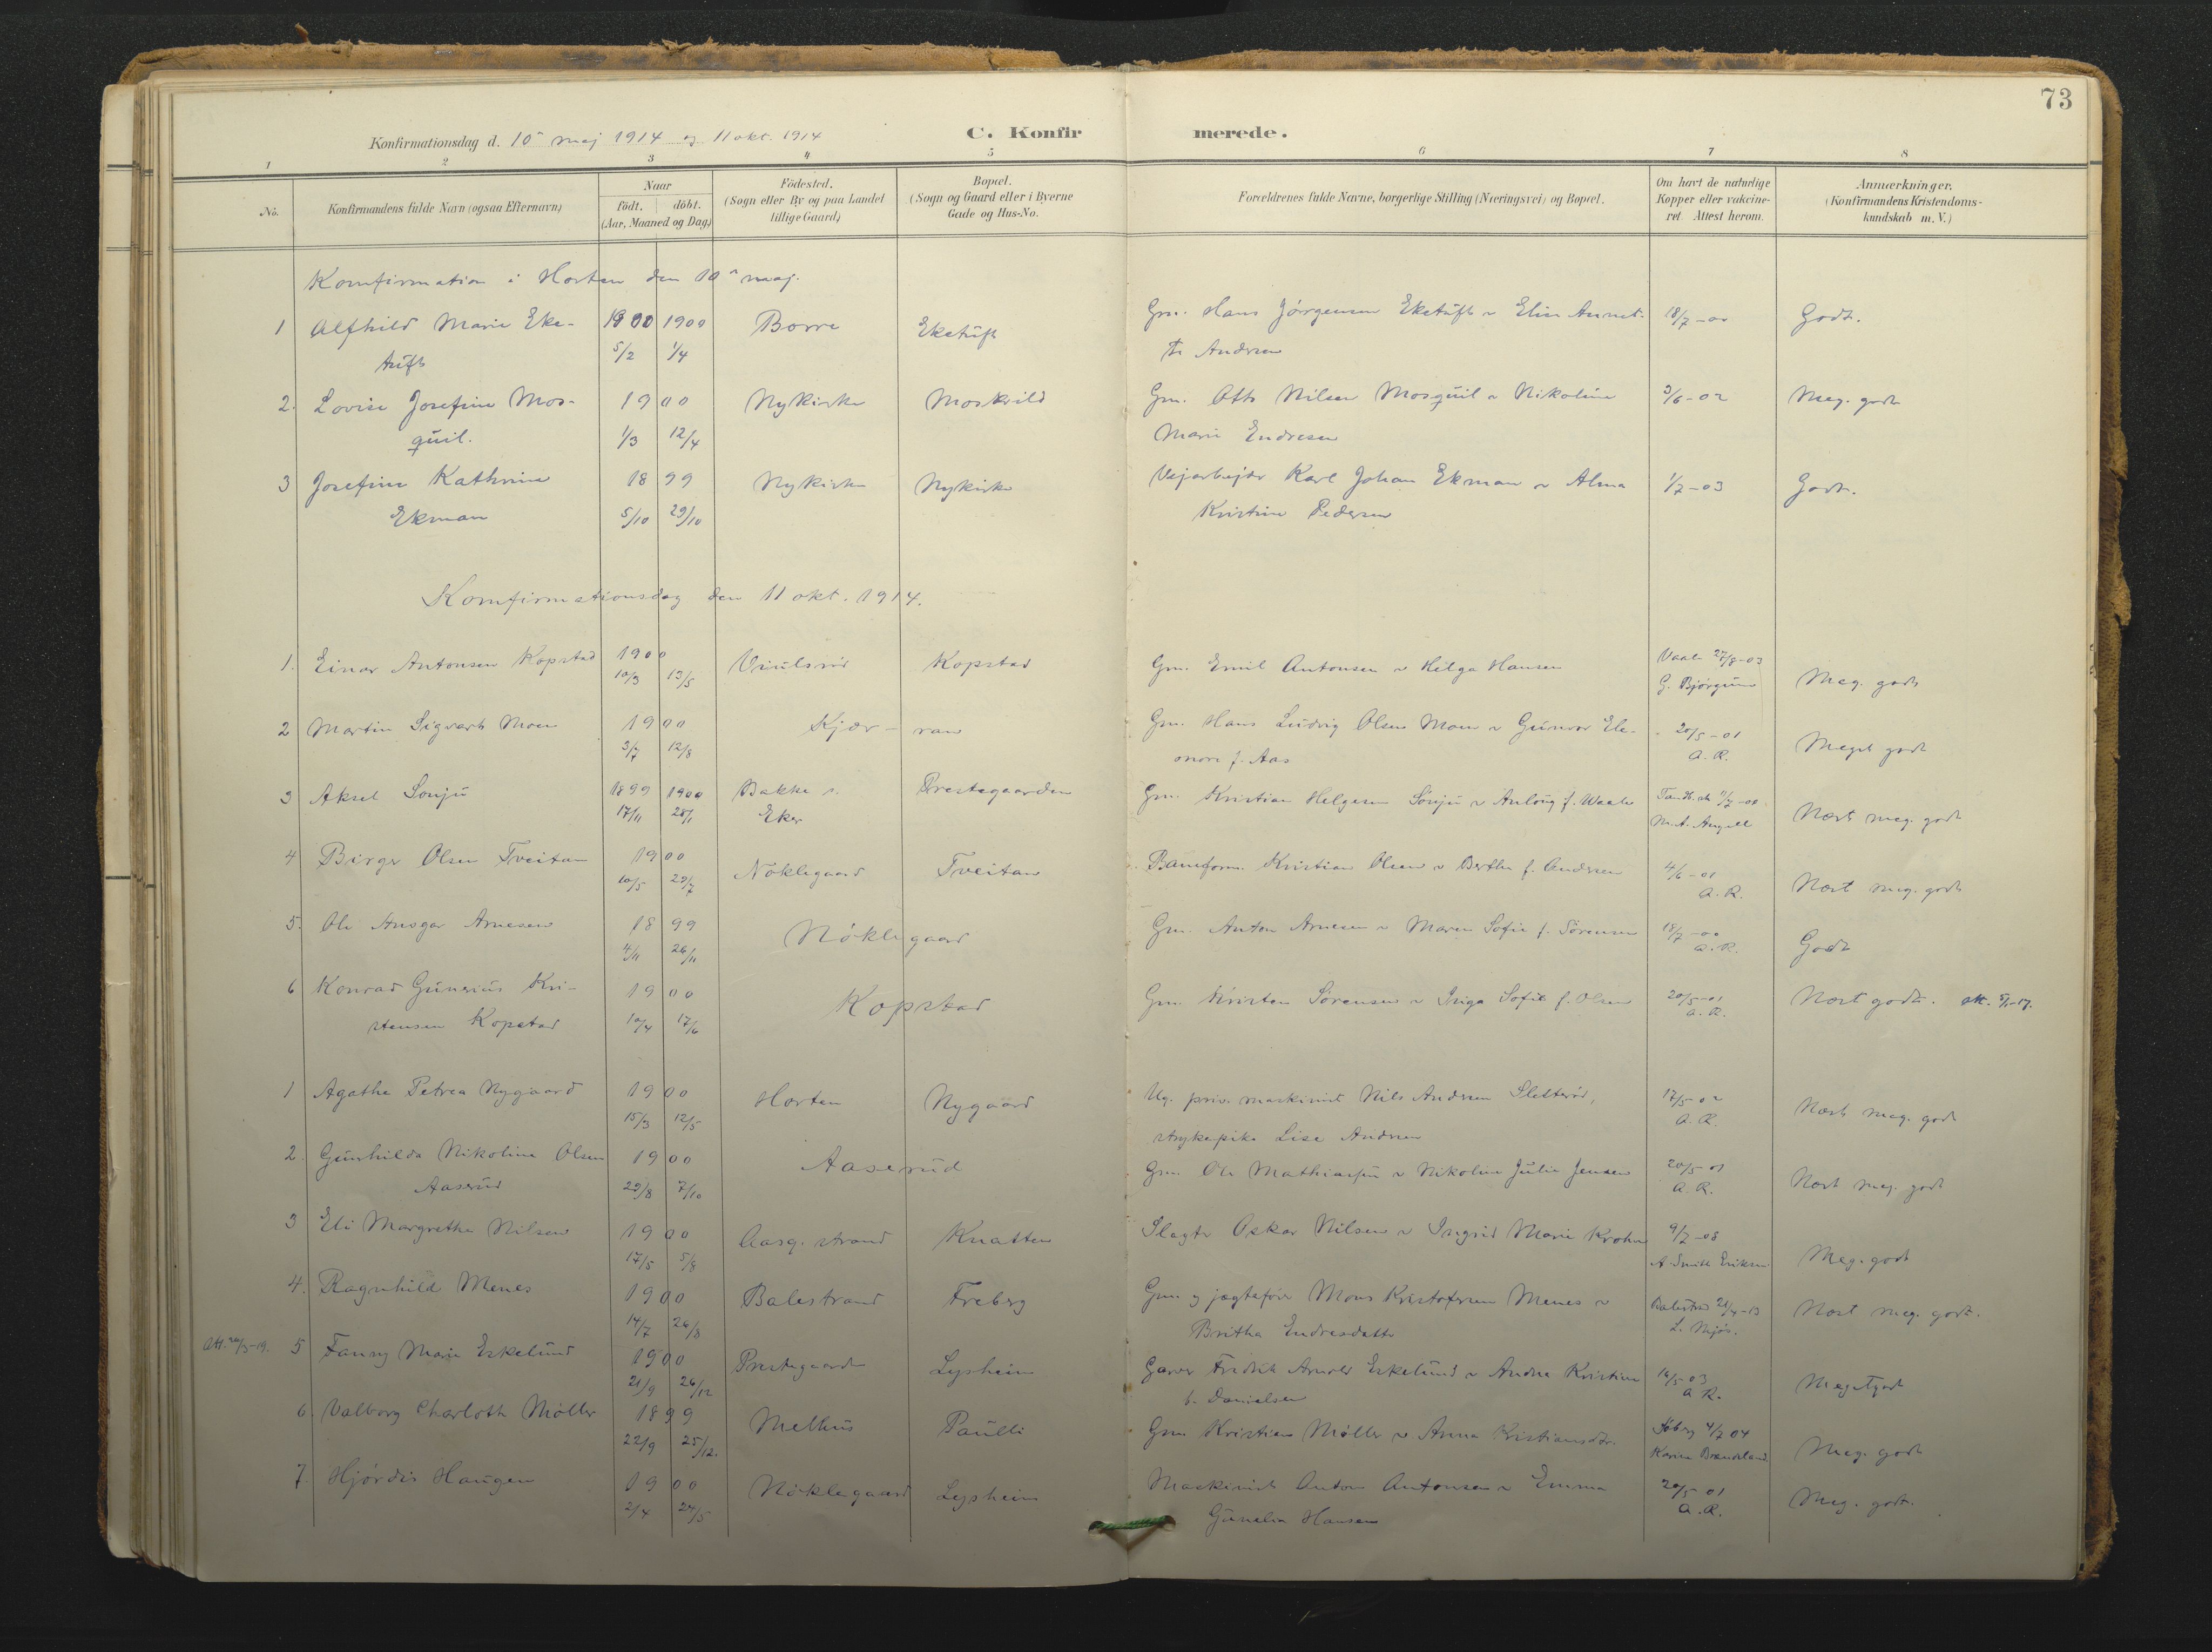 73
Konfirmationsdag d. 10 maj 1914 og 11 okt. 1914
C. Konfir merede.
1 2 3 4 5 6 7 8
No.
Konfirmandens fulde Navn (ogsaa Efternavn)
Naar
födt. döbt.
(Aar, Maaned og Dag)
Födested.
(Sogn eller By og paa Landet
tillige Gaard)
Bopæl.
(Sogn og Gaard eller i Byerne
Gade og Hus-No.
Forældrenes fulde Navne, borgerlige Stilling (Næringsvei) og Bopæl.
Om havt de naturlige
Kopper eller vakcine-
ret. Attest herom.
Anmærkninger.
(Konfirmandens Kristendoms-
kundskab m. V.)
Komfirmation i Horten den 10 maj.
1 Alfhild Marie Eke- 1900 1900 Borre Eketuft Gm. Hans Jörgensen Eketuft & Elin Annet- 18/7-00 Godt.
tuft 5/2 1/4 te Andersen
2. Lovise Josefine Mos- 1900 Nykirke Moskvild Gm. Otto Nilsen Mosquil & Nikoline 3/6-02 Meg. godt
quil. 1/3 12/4 Marie Endresen
3 Josefine Kathrine 1899 Nykirke Nykirke Vejarbejder Karl Johan Ekman & Alma 1/7-03 Godt.
Ekman 5/10 29/10 Kristine Pedersen
Komfirmationsdag den 11 okt. 1914.
1. Einar Antonsen Kopstad 1900 Viulsrød Kopstad Gm. Emil Antonsen & Helga Hansen Vaale 27/8-03
10/3 13/5 G. Bjørgum Meg. godt
2 Martin Sigvart Moen 1900 Kjær-ran Gm. Hans Ludvig Olsen Moen & Gunvor Ele- 20/5-01 Meget godt
3/7 12/8 onore f. Aas A.R.
3 Aksel Sonju 1899 1900 Bakke s. Prestegaarden Gm. Kristian Helgesen Sönju & Anlaug f. Waale 11/7-00 Næst meg. godt
17/11 28/1 Eker M.A. Angell
4 Birger Olsen Tveitan 1900 Nöklegaard Tveitan Baneform. Kristian Olsen & Berthe f. Andersen 4/6-01 Næst meg. godt
10/5 29/7 A.R.
5. Ole Ansgar Arnesen 1899 Nöklegaard Gm. Anton Arnesen & Maren Sofie f. Sörensen 18/7-00 Godt
4/11 26/11 A.R.
6 Konrad Gunerius Kri- 1900 Kopstad Gm. Kristen Sörensen & Inga Sofie f. Olsen 20/5-01 Næst godt. att. 5/1-17.
stensen Kopstad 10/4 17/6 A.R.
1 Agathe Petrea Nygaard 1900 Horten Nygaard Ug. priv. maskinist Nils Andersen Sletteröd, 17/5-02 Næst meg. godt
15/3 12/5 strykepike Lise Andersen A.R.
2. Gunhilda Nikoline Olsen 1900 Aaserud Gm. Ole Mathiassen & Nikoline Julie Jensen 20/5-01 Næst meg. godt
Aaserud 29/8 7/10 A.R.
3 Eli Margrethe Nilsen 1900 Aasg. strand Knatten Slagter Oskar Nilsen & Ingrid Marie Krohn 9/7-08 Meg. godt
17/5 5/8 A. Smith Eriksen
4. Ragnhild Menes 1900 Balestrand Freberg Gm. og jægtefører Mons Kristofersen Menes & Balestrand 21/4-13 Næst meg. godt.
14/7 26/8 Britha Endresdatter L. Mjös.
Att. 20/3-19. 5 Fanny Marie Eskelund 1900 Prestegaarden Lysheim Garver Fredrik Arnold Eskelund & Andrea Kristine 16/5-03 Meget godt
21/9 26/12 f. Danielsen A.R.
6. Valborg Charlotte Möller 1899 Melhus Paulli Gm. Kristian Möller & Anna Kristiansdtr. 4/7 04 Meg. godt
22/9 25/12. Karen Brandsland
7. Hjördis Haugen 1900 Nöklegaard Lysheim Maskinist Anton Antonsen & Emma 20/5 01 Meg. godt.
2/4 27/5 Gunelia Hansen A.R.